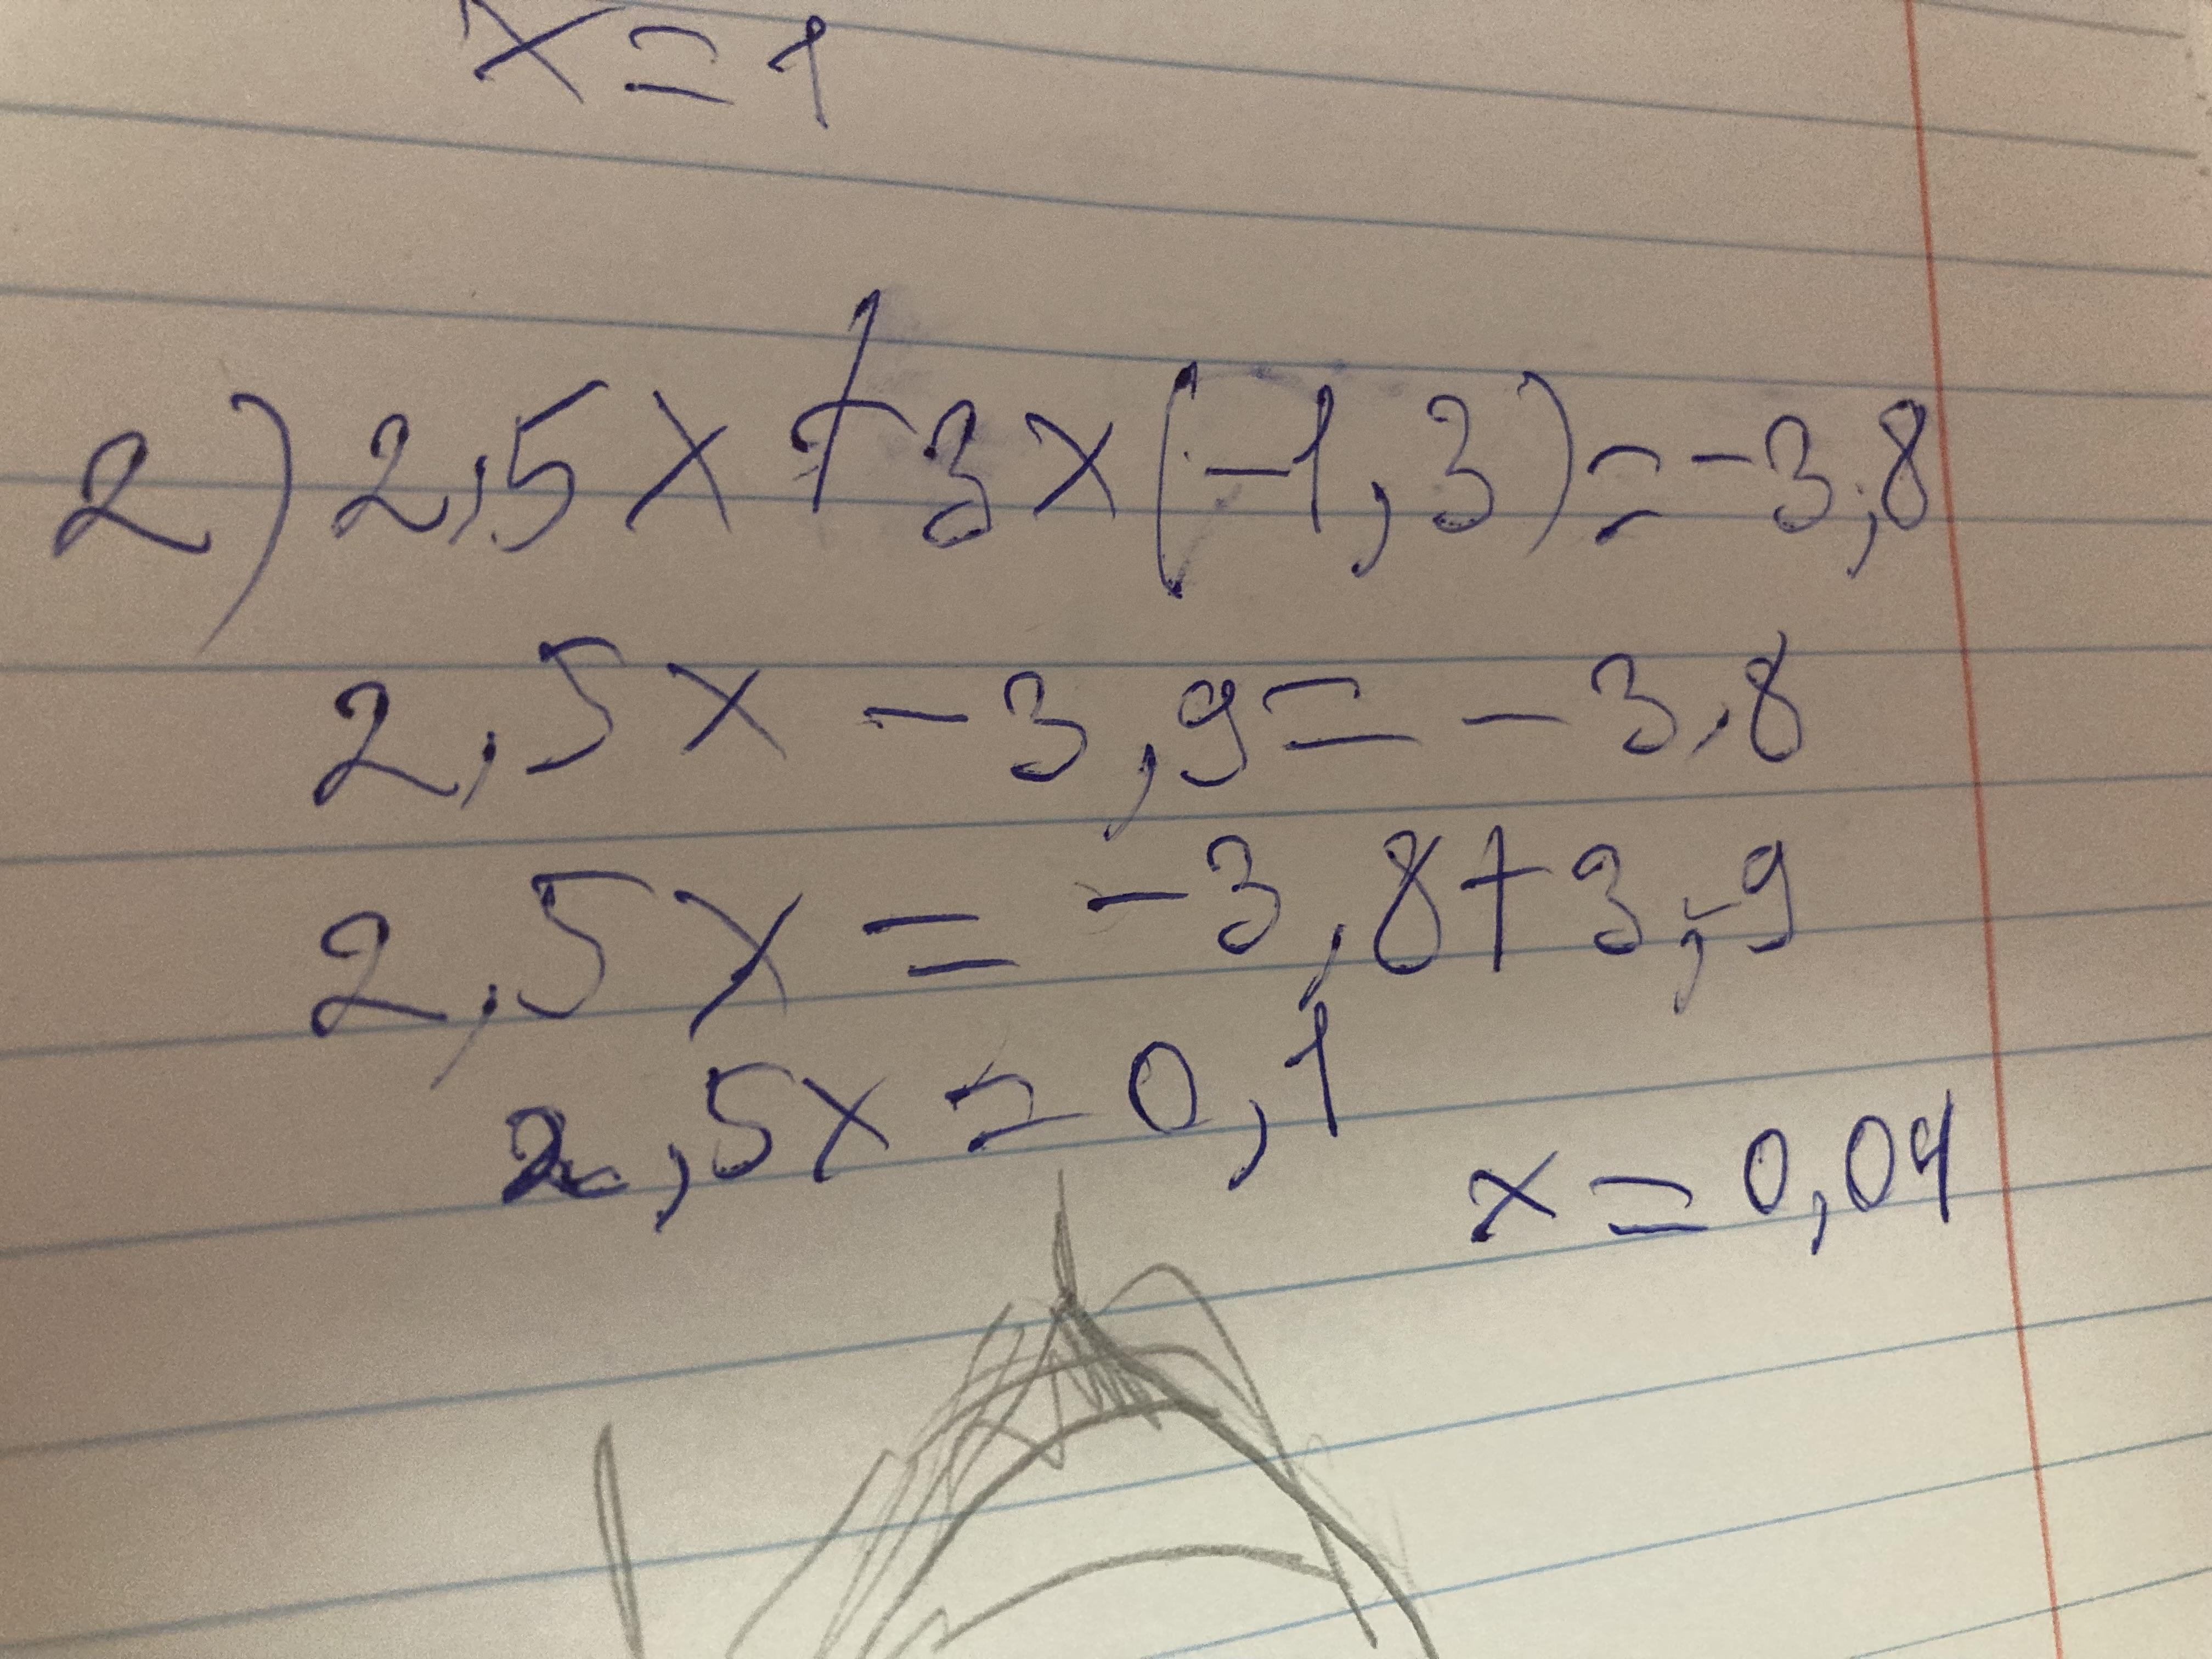 x=1
2) 2,5x+3x(-1,3)=-3,8
2,5x-3,9=-3,8
2,5x=-3,8+3,9
2,5x=0,1
x=0,04